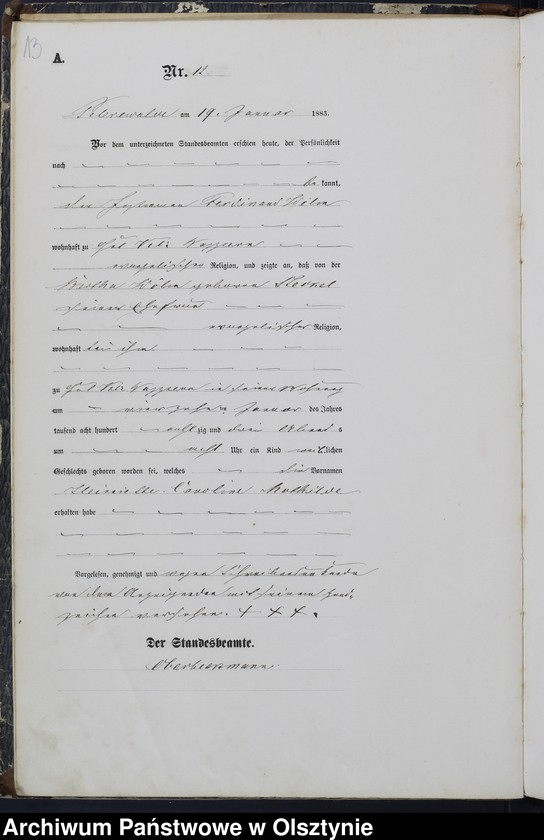 13
A.
Nr. 12
am 19. Januar 1883.
Vor dem unterzeichneten Standesbeamten erschien heute, der Persönlichkeit
nach
be kannt,
der Ferdinand Kölm
wohnhaft zu Gut
evangelischer Religion, und zeigte an, daß von der
geborenen
seiner Ehefrau
evangelischer Religion,
wohnhaft bei ihm
zu Gut in seiner Wohnung
am vierzehn ten Januar des Jahres
tausend acht hundert acht zig und drei Abend s
um acht Uhr ein Kind weiblichen
Geschlechts geboren worden sei, welches die Vornamen
Caroline Mathilde
erhalten habe
Vorgelesen, genehmigt und wegen
von dem Anzeigenden mit seinem Hand-
zeichen versehen. + + +.
Der Standesbeamte.
Archiwum Państwowe w Olsztynie